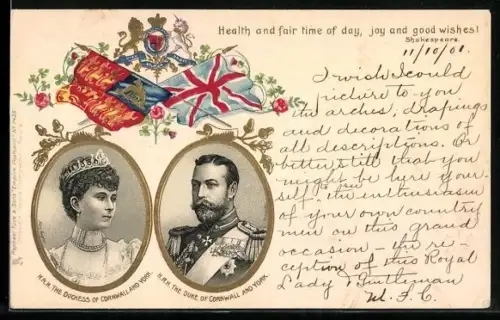 Health and fair time of day, joy and good wishes!
Shakespeare.
11/10/01.
I wish I could
picture to you
the arches, drapings
and decorations of
all descriptions. Or
better still that you
might be here your-
self to see the enthusiasm
of your own country
men on this grand
occasion – the re-
ception of this Royal
Lady & Gentleman
M. J. C.
H.R.H. THE DUCHESS OF CORNWALL AND YORK.
H.R.H. THE DUKE OF CORNWALL AND YORK.
Raphael Tuck & Sons'